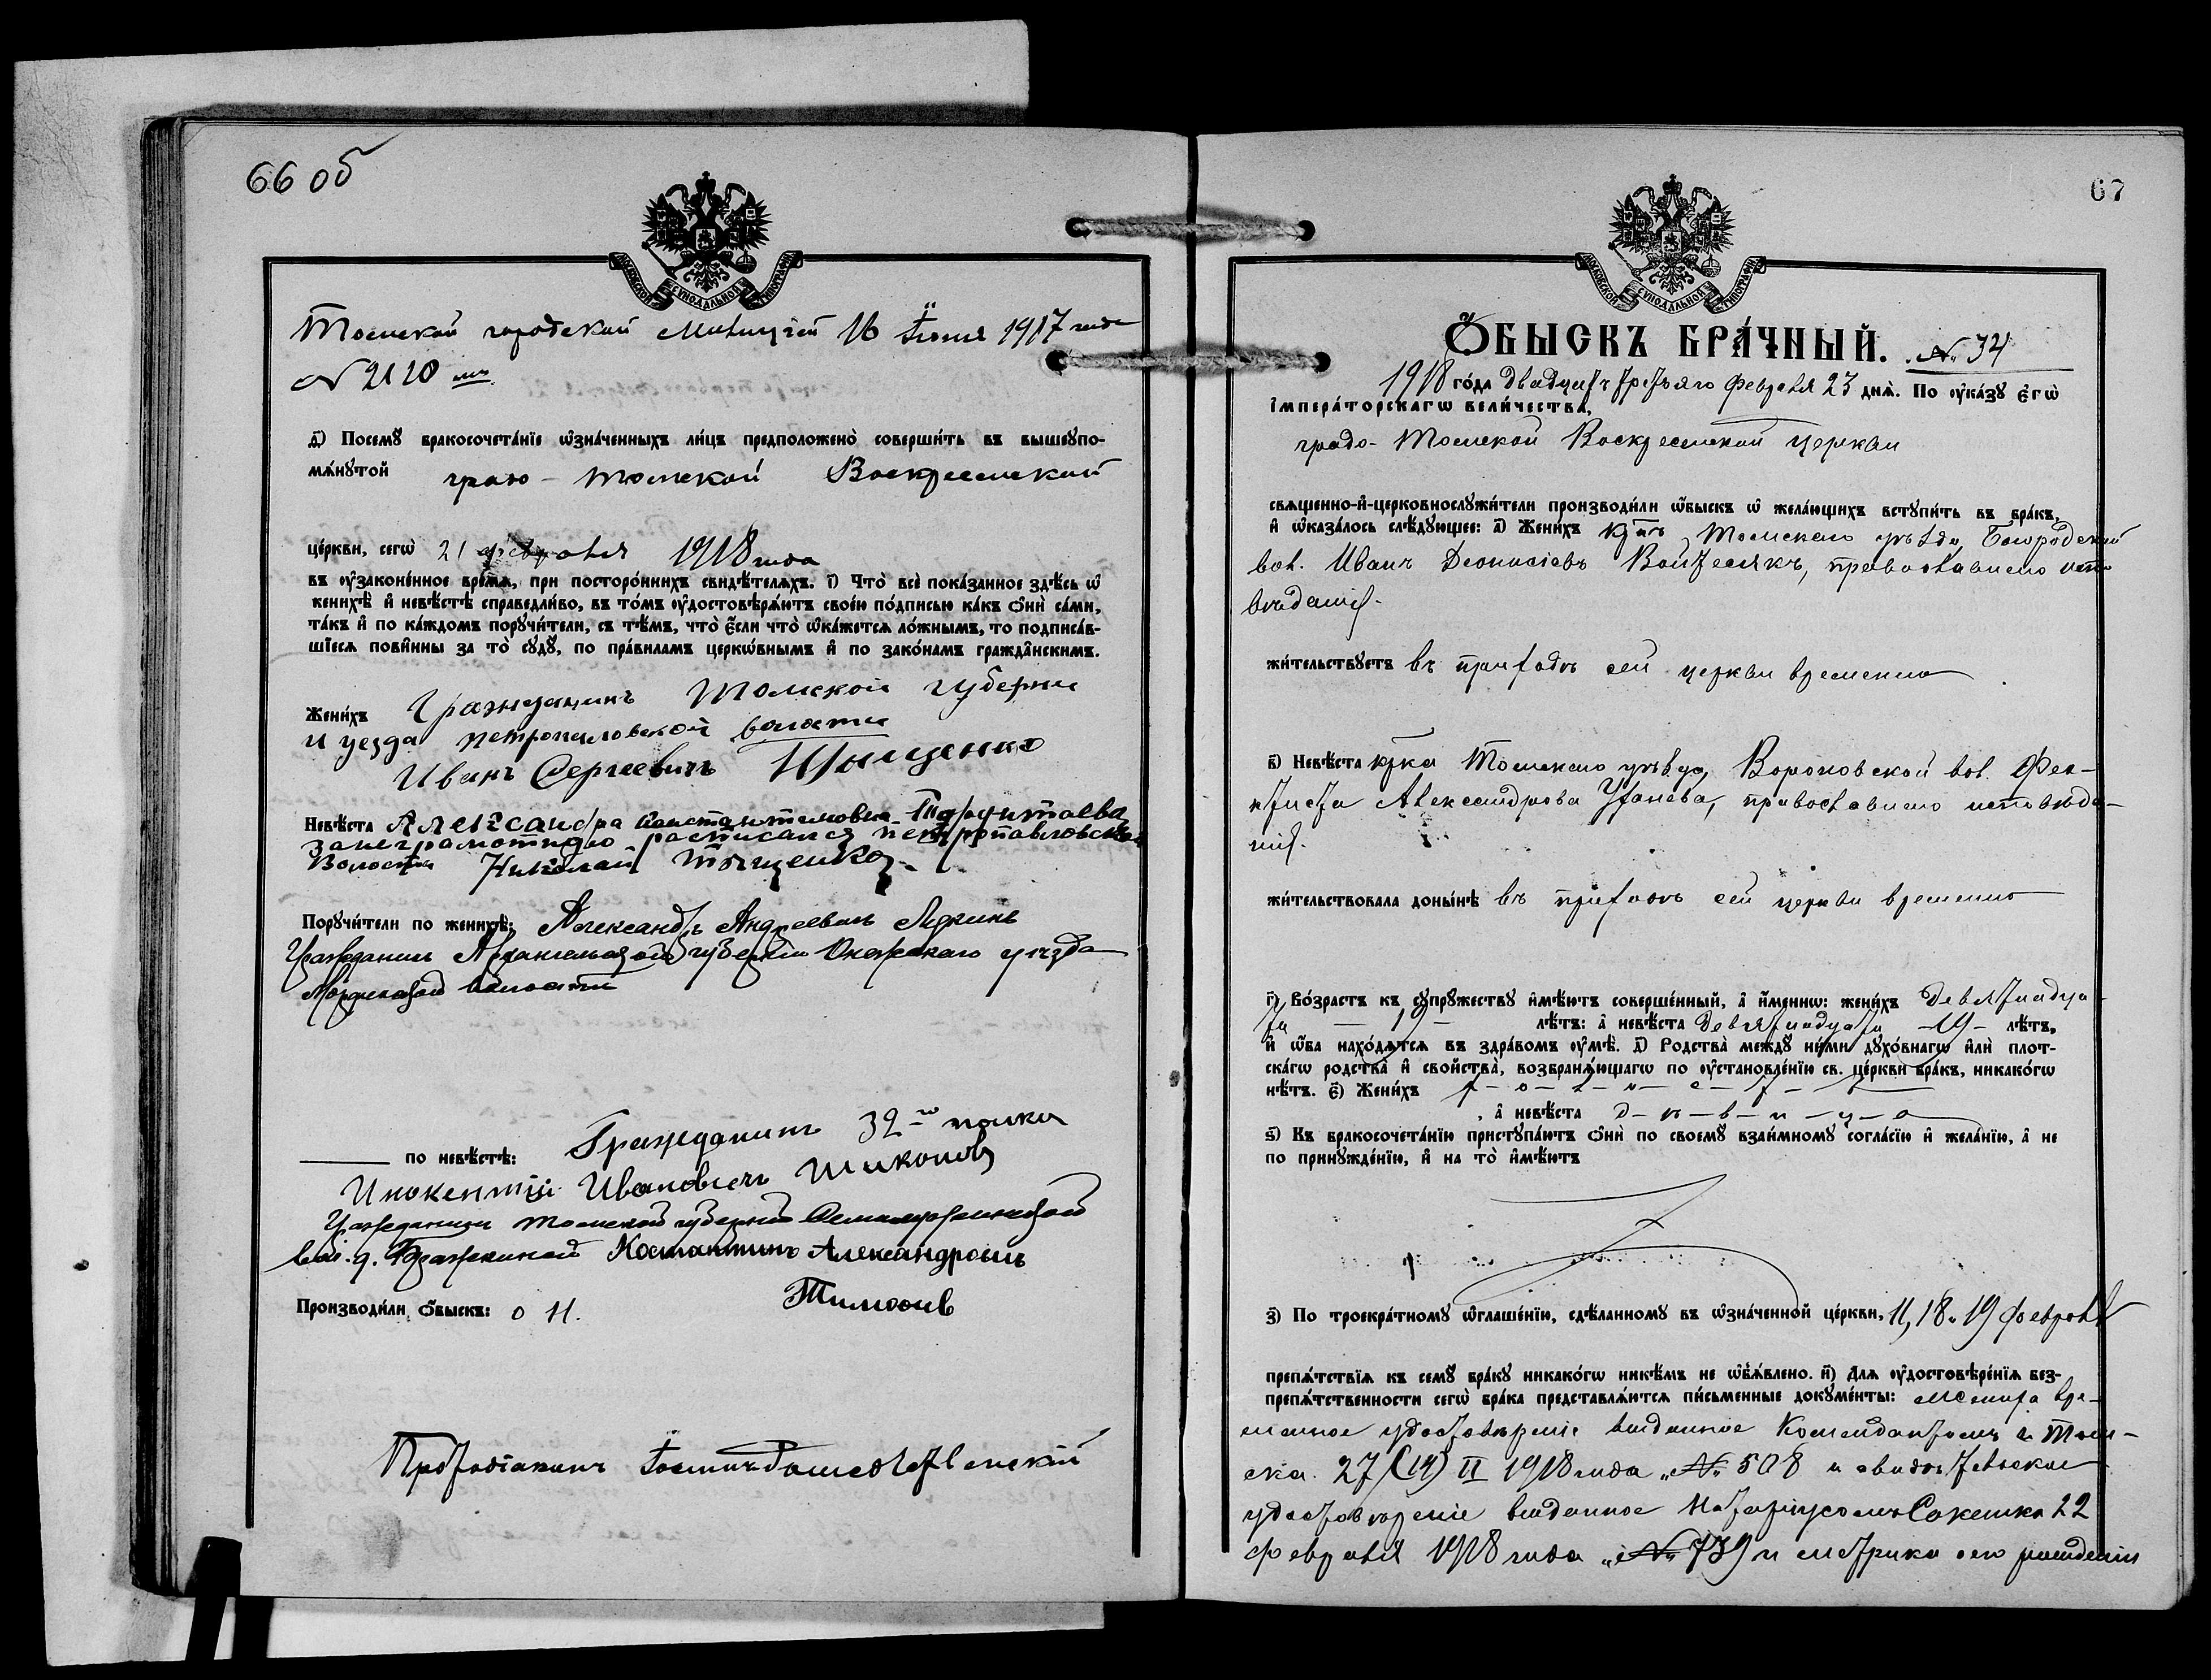 66 об
МОСКОВСКОЙ СΥНОДАЛЬНОЙ ТИПОГРАФIИ
Томской городской Милиціей 16 Іюня 1917 года
N 2120
д҃і) Посемꙋ̀ бракосочета́нїе ѡ҆зна́ченныхъ ли́цъ предположено̀ соверши́ть въ вышеꙋпо-
мѧ́нꙋтой градо-Томской Воскресенской
це́ркви, сегѡ̀ 21 февраля 1918 года
въ оу҆зако́ненное вре́мѧ, при посторо́ннихъ свидѣ́телѧхъ. і҃) Что̀ всѐ пока́занное здѣ́сь ѡ҆
женихѣ̀ и҆ невѣ́стѣ справедли́во, въ то́мъ оу҆достовѣрѧ́ютъ свое́ю по́дписью ка́къ ѻ҆нѝ са́ми,
та́къ и҆ по ка́ждомъ порꙋчи́тели, съ тѣ́мъ, что̀ є҆́сли что̀ ѡ҆ка́жетсѧ ло́жнымъ, то подписа́в-
шїесѧ пови́нны за то̀ сꙋдꙋ̀, по пра́виламъ церкѡ́внымъ и҆ по зако́намъ гражда́нскимъ.
Жени́хъ Гражданинъ Томской губерни
и уезда петропавловской волости
Иванъ Сергеевичъ Тыщенко
Невѣ́ста Александра Константиновна
занеграмотную росписался петропавловской
Волости Николай Тыщенко
Порꙋчи́тели по женихѣ̀: Александръ Андреевичъ
Гражданинъ Архангельской губерніи Онежскаго уѣзда
волости
по невѣ́стѣ: Гражданинъ 32-го полка
Инокентій Ивановичъ Шиконов
Гражданинъ томской губерніи Семилуженской
вол. д. Костантинъ Александровичъ
Тимофеив
Производи́ли ѻ҆́быскъ: о Н.
67
МОСКОВСКОЙ СΥНОДАЛЬНОЙ ТИПОГРАФIИ
Ѻ҆́БЫСКЪ БРА́ЧНЫЙ. № 34
1918 го́да двадцать третьяго февраля 23 днѧ̀. По оу҆ка́зꙋ є҆гѡ̀
і҆мпера́торскагѡ вели́чества,
градо-Томской Воскресенской церкви
свѧще́нно-и҆-церковнослꙋжи́тели производи́ли ѻ҆́быскъ ѡ҆ жела́ющихъ встꙋпи́ть въ бра́къ,
и҆ ѡ҆каза́лось слѣ́дꙋющее: а҃) Жени́хъ кр-нъ Томскаго уѣзда, Богородской
вол. Иванъ Деонисіевъ Войтесякъ, православнаго испо
вѣданія.
жи́тельствꙋетъ въ приходѣ сей церкви временно
в҃) Невѣ́ста кр-ка Томскаго уѣзда, Вороновской вол. Фео-
ктиста Александрова православнаго исповѣда-
нія.
жи́тельствовала доны́нѣ въ приходѣ сей церкви временно
г҃) Во́зрастъ къ сꙋпрꙋ́жествꙋ и҆мѣ́ютъ соверше́нный, а҆ и҆́меннѡ: жени́хъ девятнадца-
ти — 19 — лѣ́тъ: а҆ невѣ́ста девятнадцати -19- лѣ́тъ,
и҆ ѻ҆́ба нахо́дѧтсѧ въ здра́вомъ оу҆мѣ̀. д҃) Родства̀ междꙋ̀ ни́ми дꙋхо́внагѡ и҆лѝ плот-
ска́гѡ родства̀ и҆ сво́йства̀, возбранѧ́ющагѡ по оу҆становле́нїю св. це́ркви бра́къ, никако́гѡ
нѣ́тъ. є҃) Жени́хъ х-о-л-о-с-т-ъ
, а҆ невѣ́ста д-ѣ-в-и-ц-а
ѕ҃) Къ бракосочета́нїю пристꙋпа́ютъ ѻ҆нѝ по своемꙋ̀ взаи́мномꙋ согла́сїю и҆ жела́нїю, а҆ не
по принꙋжде́нїю, и҆ на то̀ и҆мѣ́ютъ
з҃) По троекра́тномꙋ ѡ҆глаше́нїю, сдѣ́ланномꙋ въ ѡ҆зна́ченной це́ркви, 11, 18 и 19 февраля
препѧ́тствїѧ къ семꙋ̀ бра́кꙋ никако́гѡ никѣ́мъ не ѡ҆б̾ѧ́влено. и҃) Длѧ оу҆достовѣре́нїѧ без-
препѧ́тственности сегѡ̀ бра́ка представлѧ́ютсѧ пи́сьменные докꙋме́нты: жениха вре-
менное удостовѣреніе выданное Комендантомъ г. Том-
ска. 27 (14) II 1918 года „№ 508 и свидѣтельское
удостовѣреніе выданное Нотаріусомъ 22
февраля 1918 года „№ 739 и метрика о его рожденіи